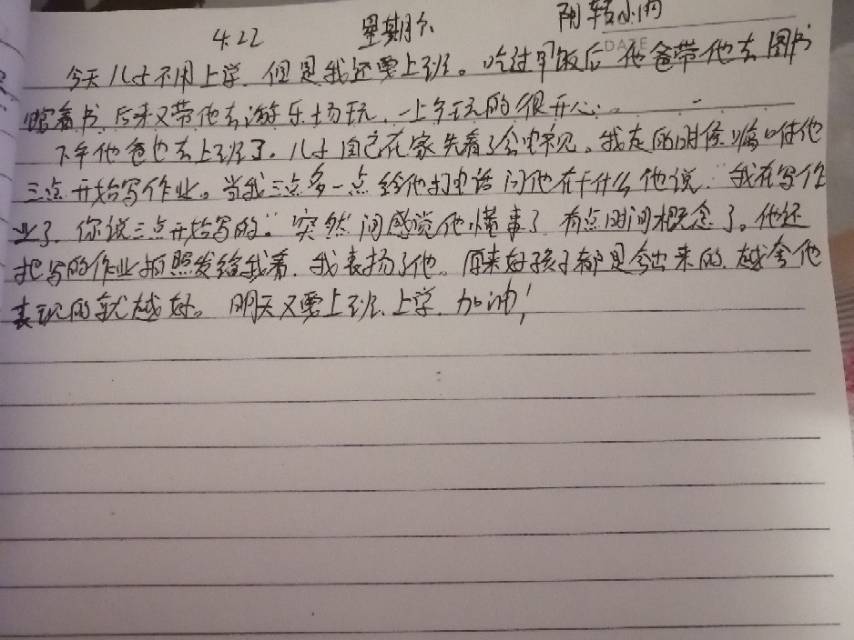 4.22 星期六 阴转小雨
DATE
今天儿子不用上学,但是我还要上班。吃过早饭后他爸带他去图书
馆看书,后来又带他去游乐场玩,一上午玩的很开心。
下午他爸也去上班了。儿子自己在家先看了会电视。我走的时候嘱咐他
三点开始写作业。当我三点多一点给他打电话问他在干什么他说:"我在写作
业了,你说三点开始写的。"突然间感觉他懂事了,有点时间概念了。他还
把写的作业拍照发给我看,我表扬了他。原来好孩子都是夸出来的,越夸他
表现的就越好。明天又要上班、上学,加油!